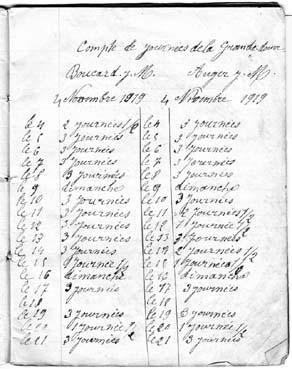 Compte de journées de la Grande
Boucard y. M. Auger y. M.
4 Novembre 1919 4 Novembre 1919
le 4 2 journées 1/2 le 4 3 journées
le 5 3 journées le 5 3 journées
le 6 3 journées le 6 3 journées
le 7 3 journées le 7 3 journées
le 8 3 journées le 8 3 journées
le 9 dimanche le 9 dimanche
le 10 3 journées le 10 3 journées
le 11 3 journées le 11 journées 1/2
le 12 3 journées le 12 1 journée 1/2
le 13 3 journées le 13 3 journées
le 14 3 journées le 14 2 journées 1/2
le 15 1 journée 1/2 le 15 1 journée 1/2
le 16 dimanche le 16 dimanche
le 17 3 journées le 17 3 journées
le 18 le 18
le 19 3 journées le 19 3 journées
le 20 1 journée 1/2 le 20 1 journée 1/2
le 21 3 journées le 21 3 journées